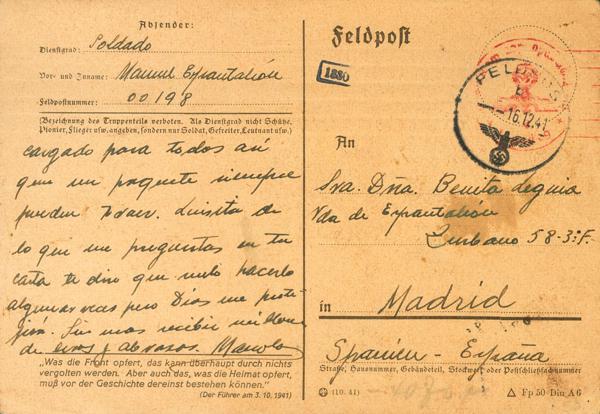 Absender:
Dienstgrad: Soldado
Vor- und Zuname: Manuel Espantaleón
Feldpostnummer: 00198
(Bezeichnung des Truppenteils verboten. Als Dienstgrad nicht Schütze,
Pionier, Flieger usw. angeben, sondern nur Soldat, Gefreiter, Leutnant usw.)
cargado para todos así
que un paquete siempre
pueden traer. Luisita de
lo que me preguntas en tu
carta te digo que suelo hacerlo
algunas veces pero Dios me
Sin mas recibir millones
de besos y abrazos. Manolo
"Was die Front opfert, das kann überhaupt durch nichts
vergolten werden. Aber auch das, was die Heimat opfert,
muß vor der Geschichte dereinst bestehen können."
(Der Führer am 3. 10. 1941)
Feldpost
1880
FELDPOST
b
-16.12.41
An
Sra. Dña. Benita Leguia
Vda de Espantaleón
Zurbano 58-3º F.
in Madrid
Spanien - España
Straße, Hausnummer, Gebäudeteil, Stockwerk oder Postschließfachnummer
(10. 41)
Fp 50 Din A 6